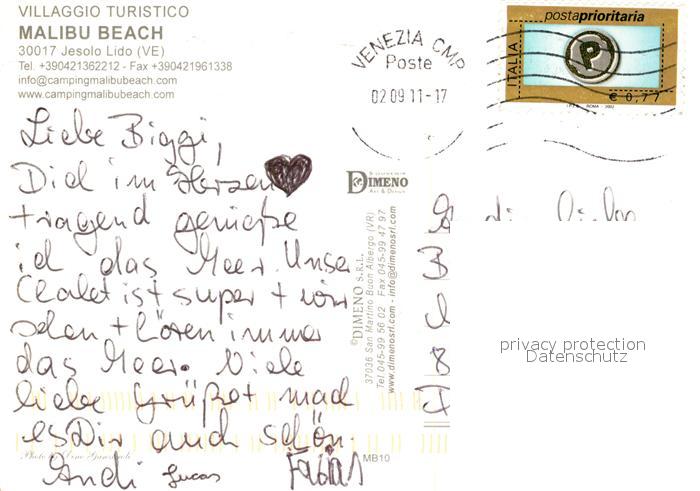 VILLAGGIO TURISTICO
MALIBU BEACH
30017 Jesolo Lido (VE)
Tel. +390421362212 - Fax +390421961338
info@campingmalibubeach.com
www.campingmalibubeach.com
VENEZIA CMP
Poste
02 09 11-17
postaprioritaria
ITALIA
P
€ 0,77
I.P.Z.S. ROMA 2002
Liebe Biggi,
Dich im Herzen
tragend genieße
ich das Meer. Unser
Chalet ist super + wir
sehen + hören immer
das Meer. Viele
liebe Grüße + mach
es Dir auch schön.
Andi Lucas Fabian
SOUVENIR
DIMENO
Art & Design
©DIMENO S.R.L.
37036 San Martino Buon Albergo (VR)
Tel 045-99 56 02 - Fax 045-99 47 97
www.dimenosrl.com - info@dimenosrl.com
MB10
B
8
privacy protection
Datenschutz